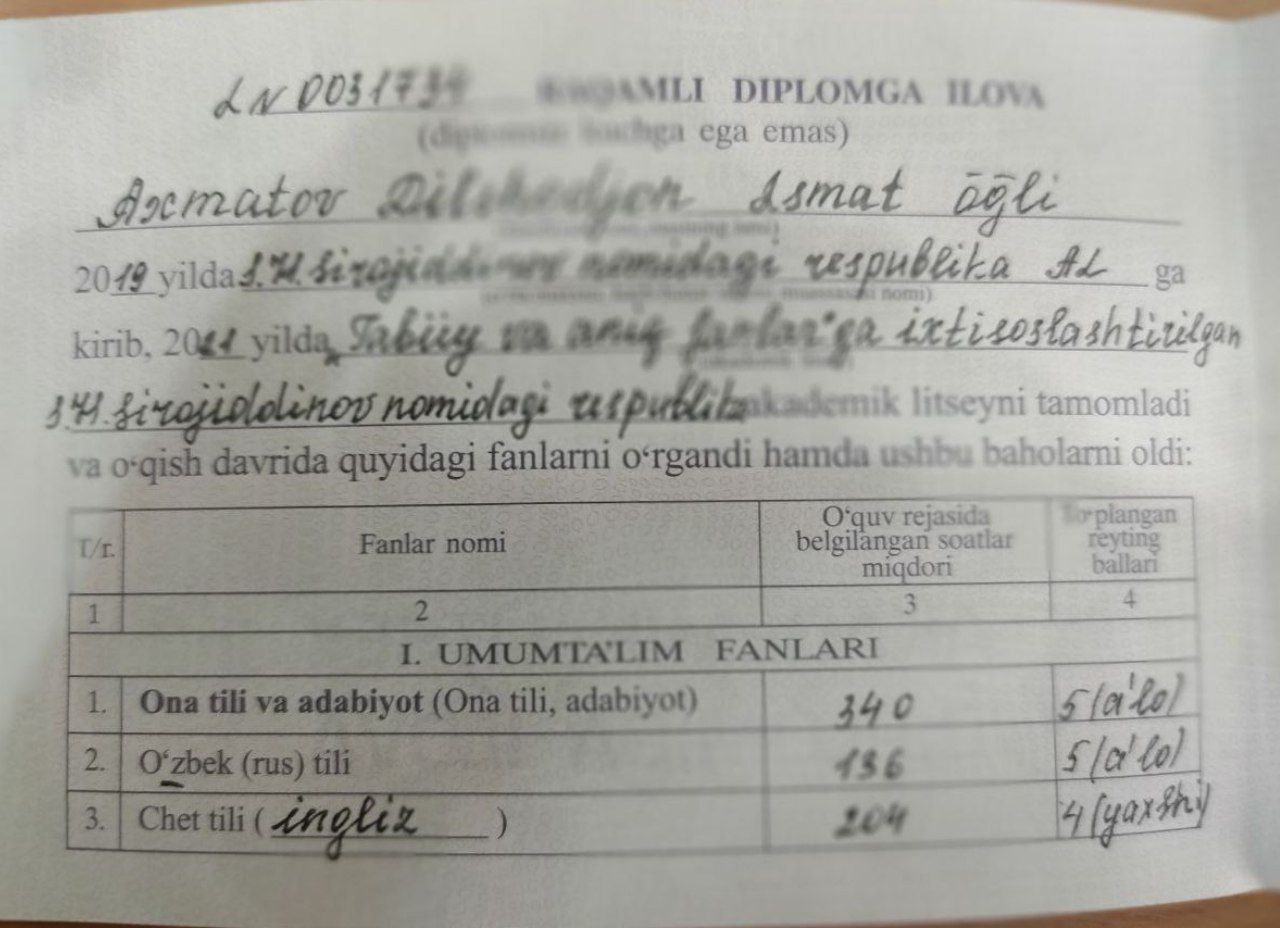 LN 0031734 RAQAMLI DIPLOMGA ILOVA
(diplomsiz kuchga ega emas)
Axmatov Ismat õg̃li
2019 yilda S.H. Sirojiddinov nomidagi respublika AL ga
nomi)
kirib, 20 yilda Tabiiy va aniq fanlarga ixtisoslashtirilgan
S.H. Sirojiddinov nomidagi respublika akademik litseyni tamomladi
va o‘qish davrida quyidagi fanlarni o‘rgandi hamda ushbu baholarni oldi:
T/r. Fanlar nomi O‘quv rejasida belgilangan soatlar miqdori To‘plangan reyting ballari
1 2 3 4
I. UMUMTA'LIM FANLARI
1. Ona tili va adabiyot (Ona tili, adabiyot) 340 5 (a'lo)
2. O‘zbek (rus) tili 136 5 (a'lo)
3. Chet tili (ingliz) 204 4 (yaxshi)